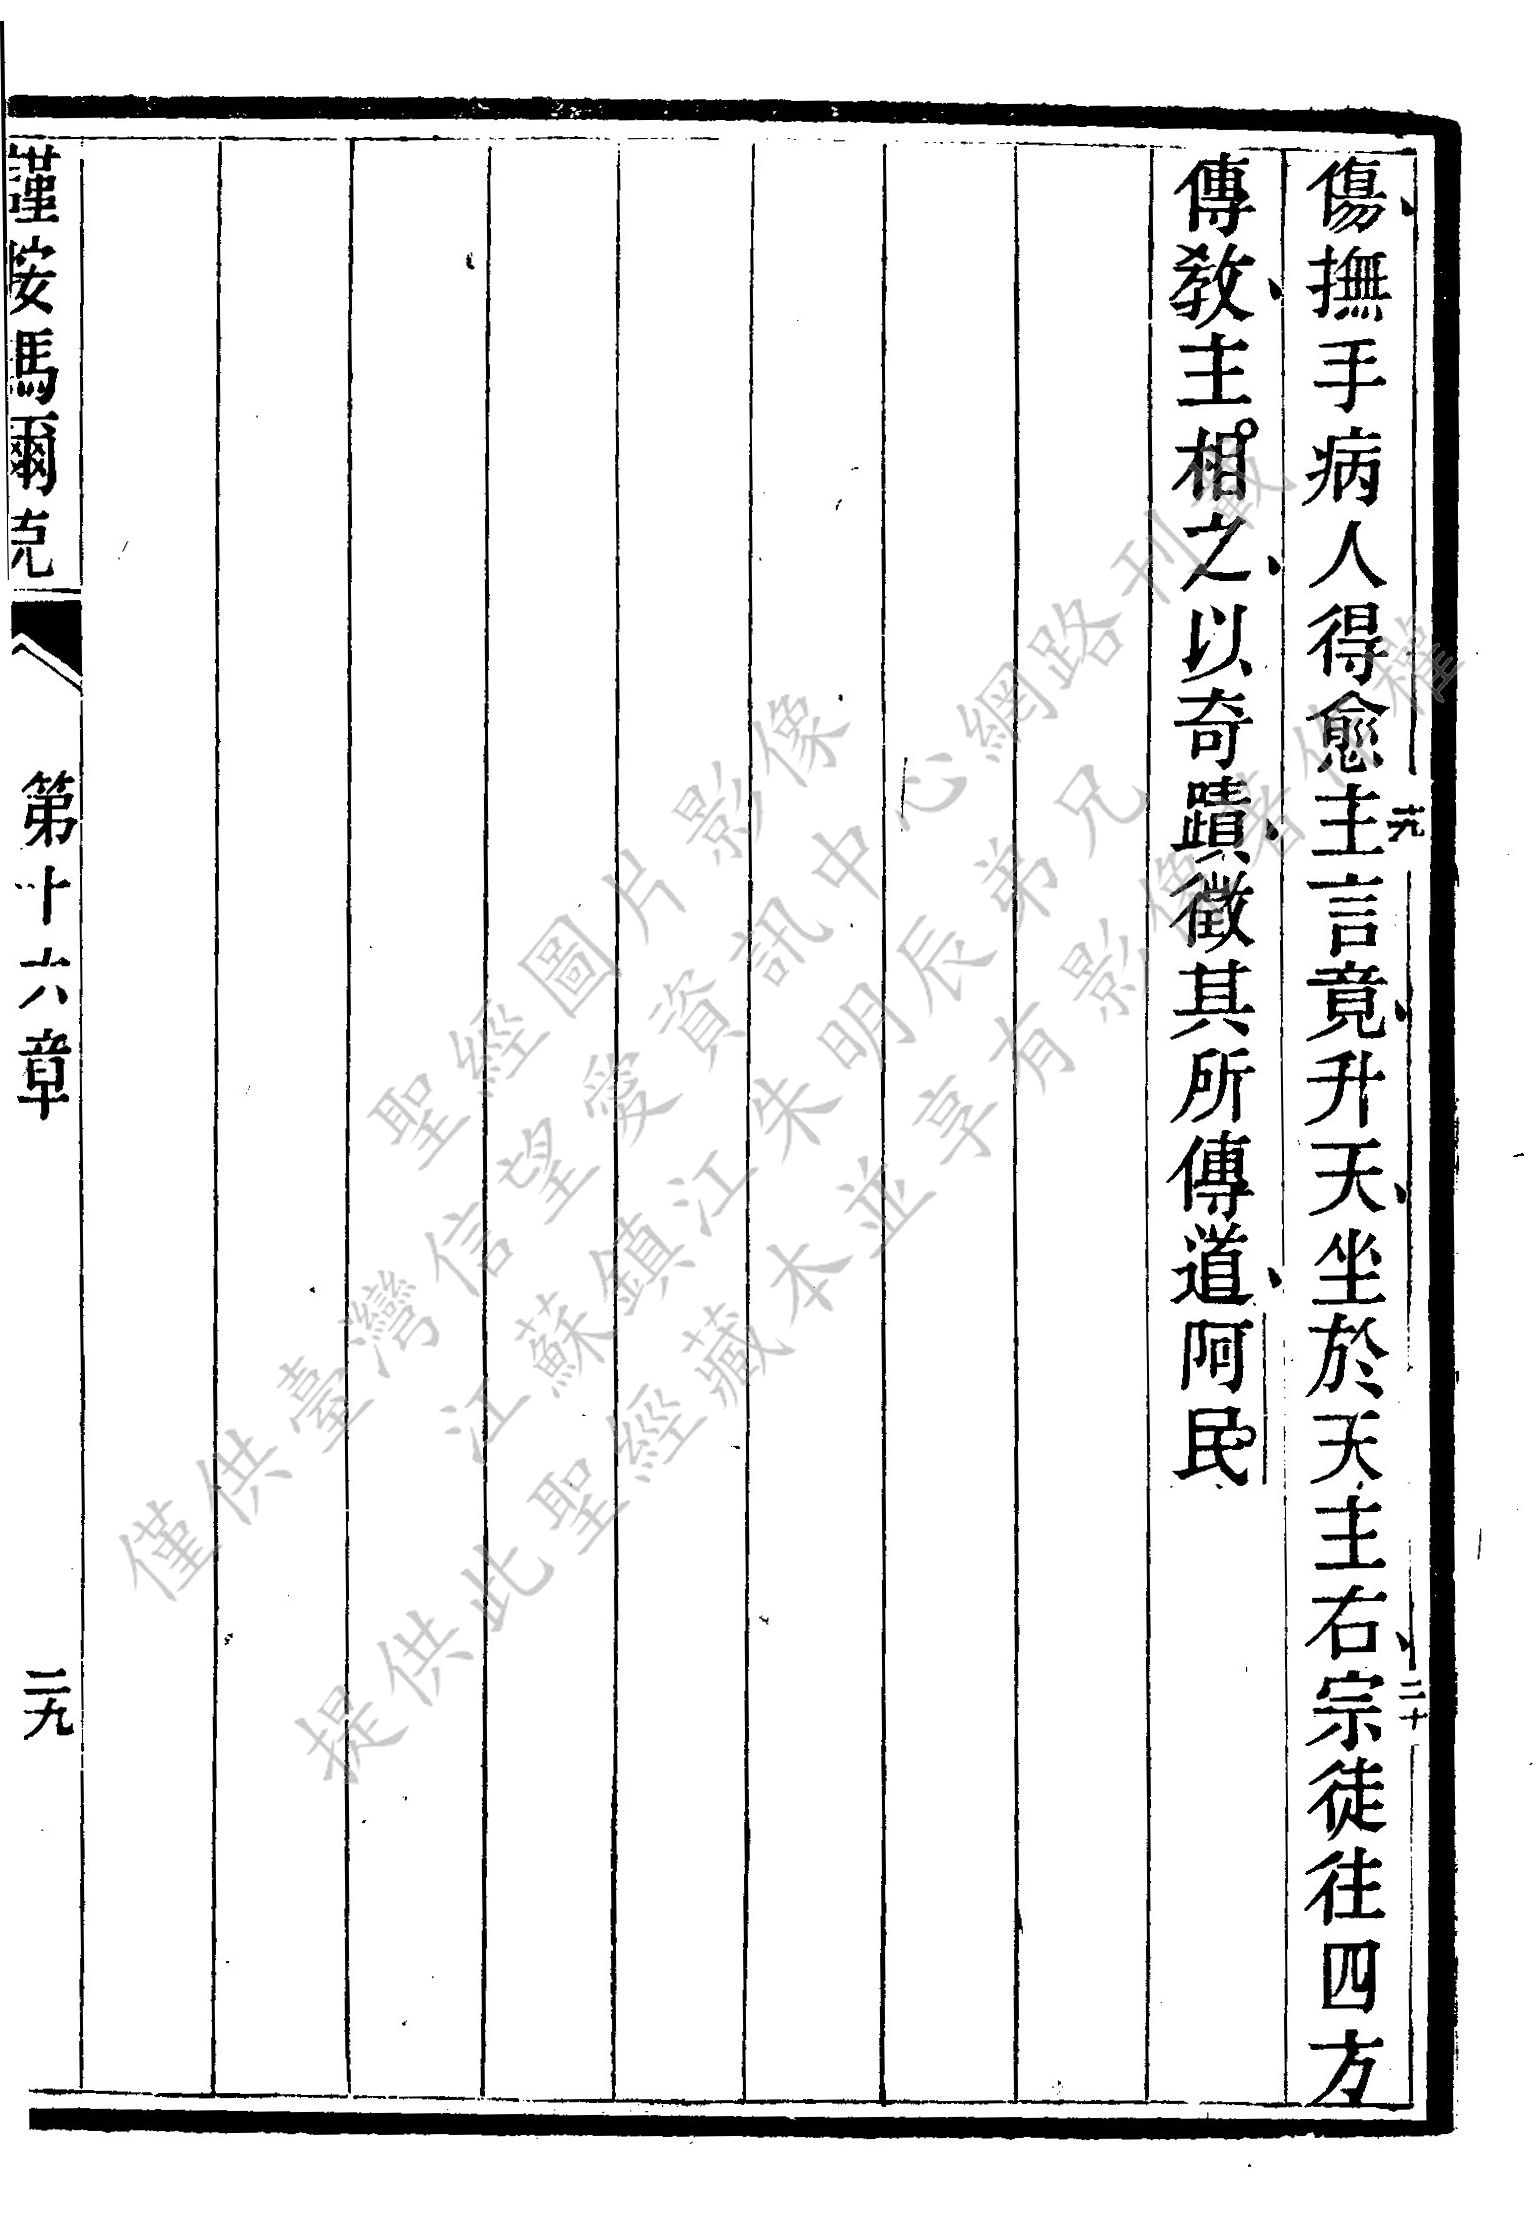 傷、撫手病人得愈十九主言竟、升天、坐於天主右、二十宗徒往四方
傳教、主相之、以奇蹟、徵其所傳道、阿民。
謹按馬爾克 第十六章 二九
聖經圖片影像
僅供臺灣信望愛資訊中心網路刊載
江蘇鎮江朱明辰弟兄
提供此聖經藏本並享有影像著作權